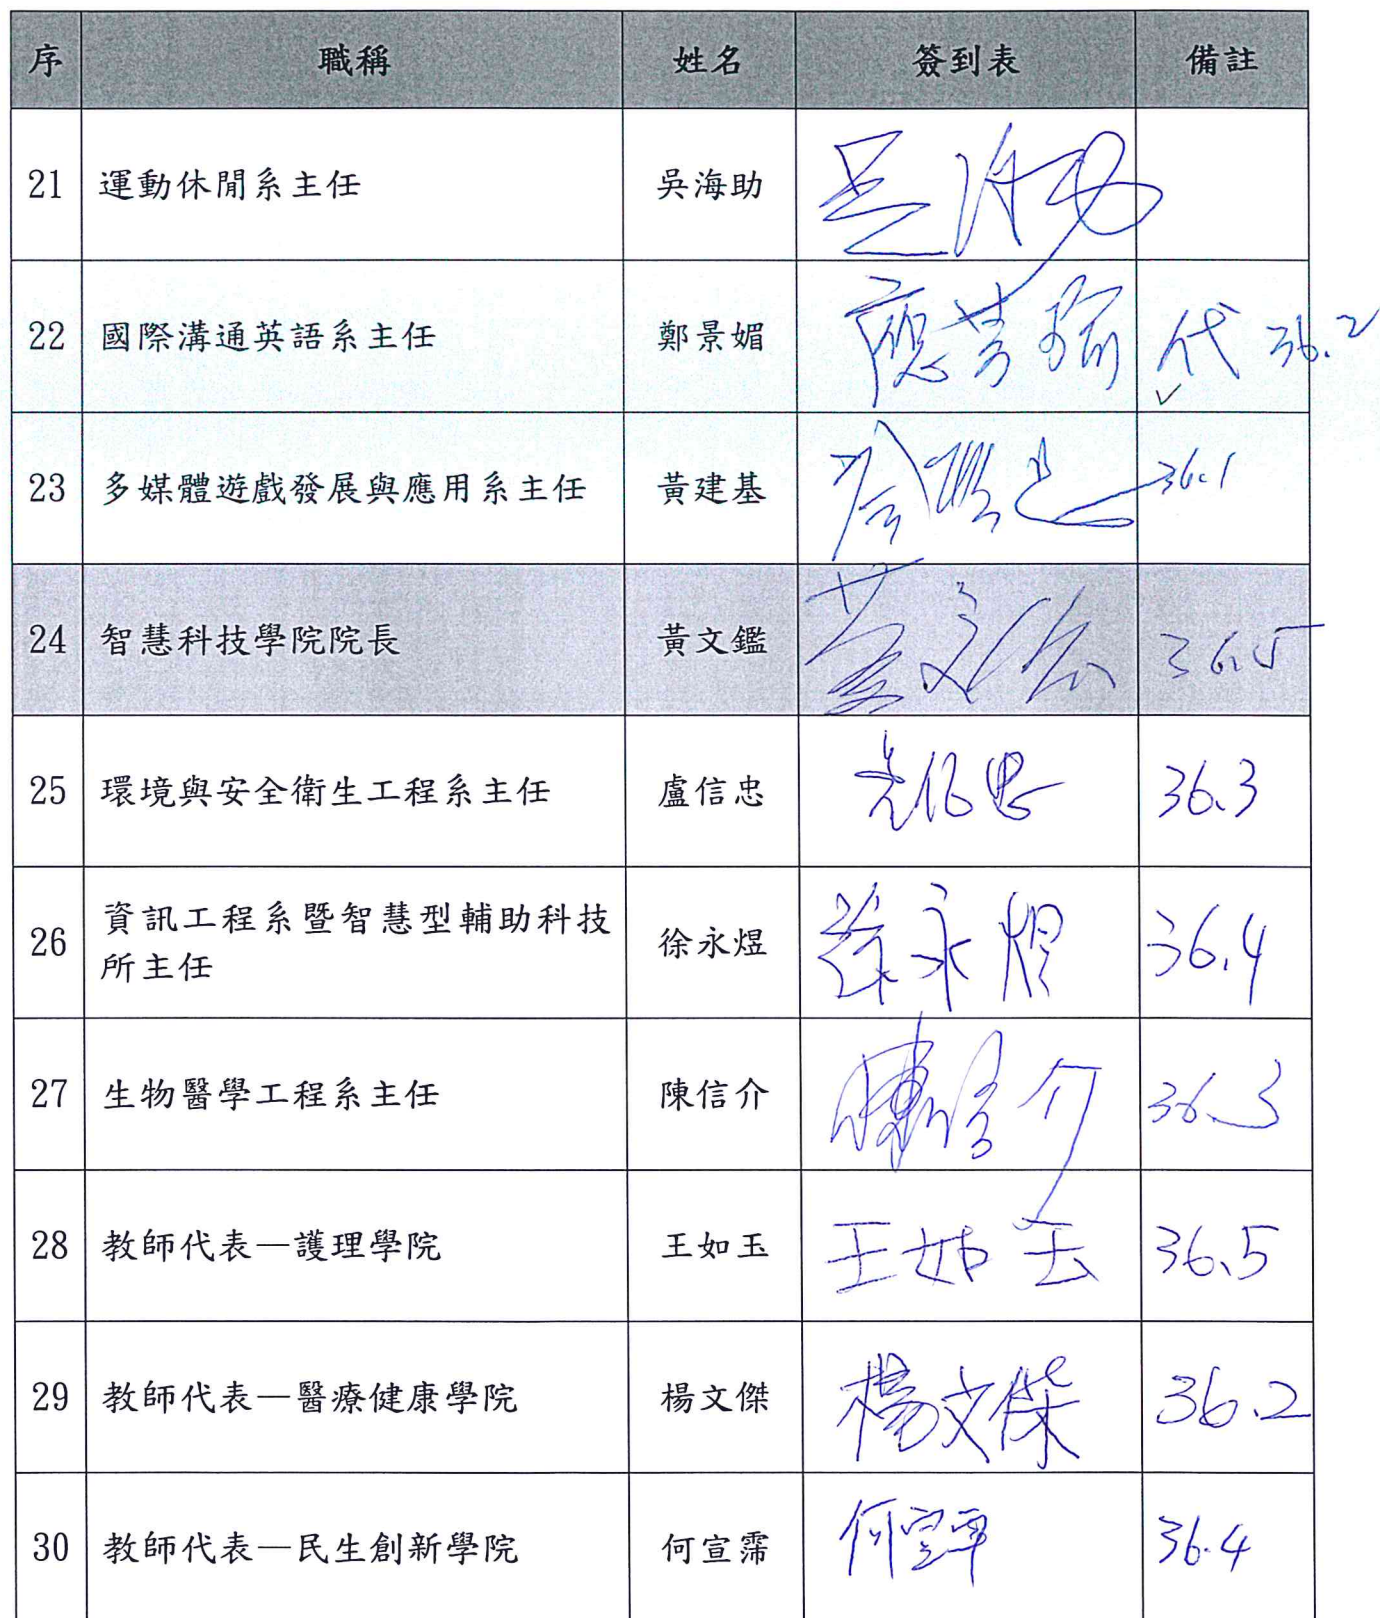 序 職稱 姓名 簽到表 備註
21 運動休閒系主任 吳海助 吳海助
22 國際溝通英語系主任 鄭景媚 應菁瑜 代 36.2
23 多媒體遊戲發展與應用系主任 黃建基 36.1
24 智慧科技學院院長 黃文鑑 黃文鑑 36.5
25 環境與安全衛生工程系主任 盧信忠 盧信忠 36.3
26 資訊工程系暨智慧型輔助科技
所主任 徐永煜 徐永煜 36.4
27 生物醫學工程系主任 陳信介 陳信介 36.3
28 教師代表—護理學院 王如玉 王如玉 36.5
29 教師代表—醫療健康學院 楊文傑 楊文傑 36.2
30 教師代表—民生創新學院 何宣霈 何宣霈 36.4